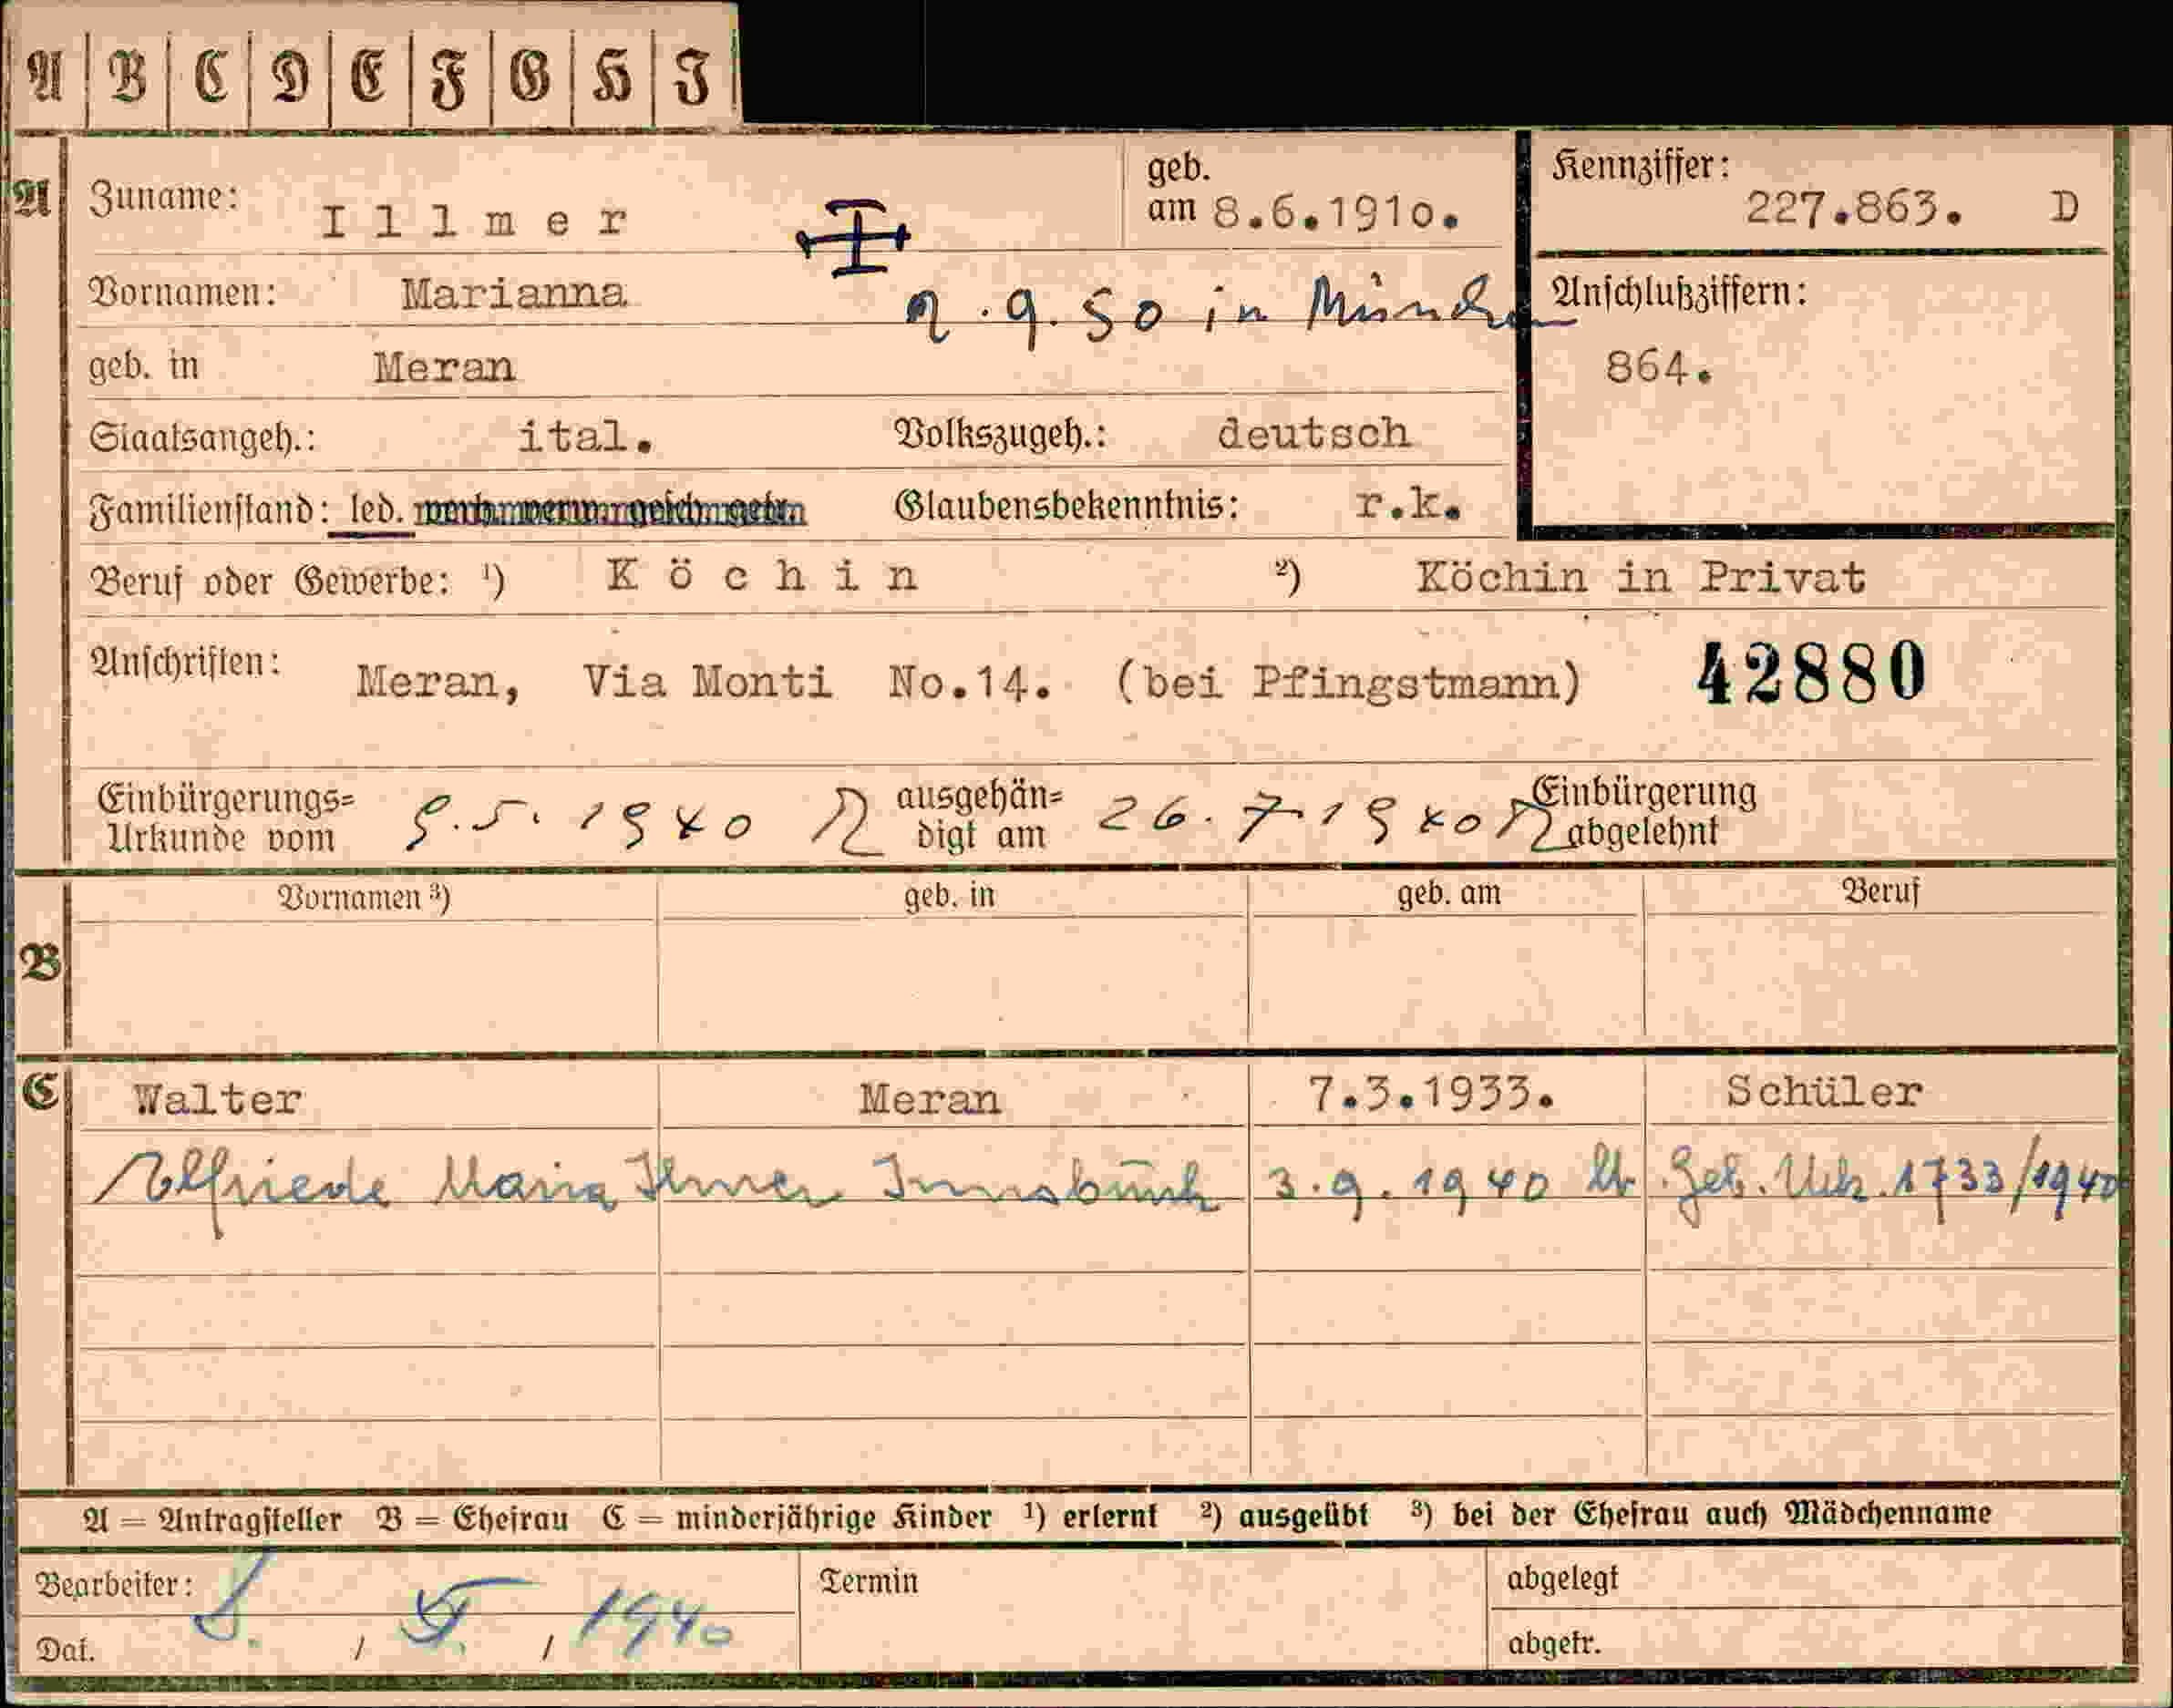 A B C D E F G H I
A
Zuname: Illmer
geb. am 8.6.1910.
Kennziffer: 227.863. D
Vornamen: Marianna
.9.50 in München
Anschlußziffern:
864.
geb. in Meran
Staatsangeh.: ital. Volkszugeh.: deutsch
Familienstand: led. Glaubensbekenntnis: r.k.
Beruf oder Gewerbe: ¹) Köchin ²) Köchin in Privat
Anschriften: Meran, Via Monti No.14. (bei Pfingstmann) 42880
Einbürgerungs=Urkunde vom 9.5.1940 ausgehän=digt am 26.7.1940 Einbürgerung abgelehnt
Vornamen ³) geb. in geb. am Beruf
B
C Walter Meran 7.3.1933. Schüler
Elfriede Maria Illmer Innsbruck 3.9.1940 Geb. Urk. 1733/1940
A = Antragsteller B = Ehefrau C = minderjährige Kinder ¹) erlernt ²) ausgeübt ³) bei der Ehefrau auch Mädchenname
Bearbeiter: Termin abgelegt
Dat. / / 1940 abgetr.